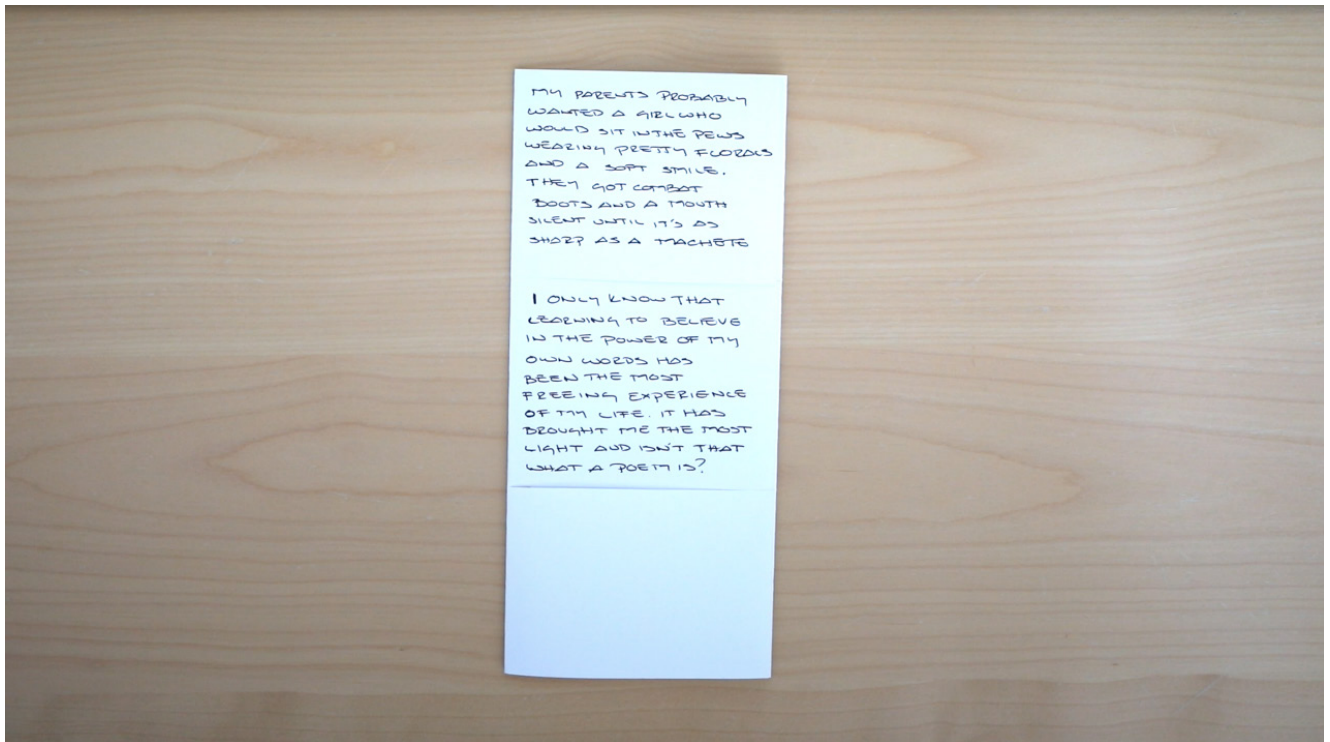 MY PARENTS PROBABLY
WANTED A GIRL WHO
WOULD SIT IN THE PEWS
WEARING PRETTY FLORALS
AND A SOFT SMILE.
THEY GOT COMBAT
BOOTS AND A MOUTH
SILENT UNTIL IT'S AS
SHARP AS A MACHETE
I ONLY KNOW THAT
LEARNING TO BELIEVE
IN THE POWER OF MY
OWN WORDS HAS
BEEN THE MOST
FREEING EXPERIENCE
OF MY LIFE. IT HAS
BROUGHT ME THE MOST
LIGHT AND ISN'T THAT
WHAT A POEM IS?